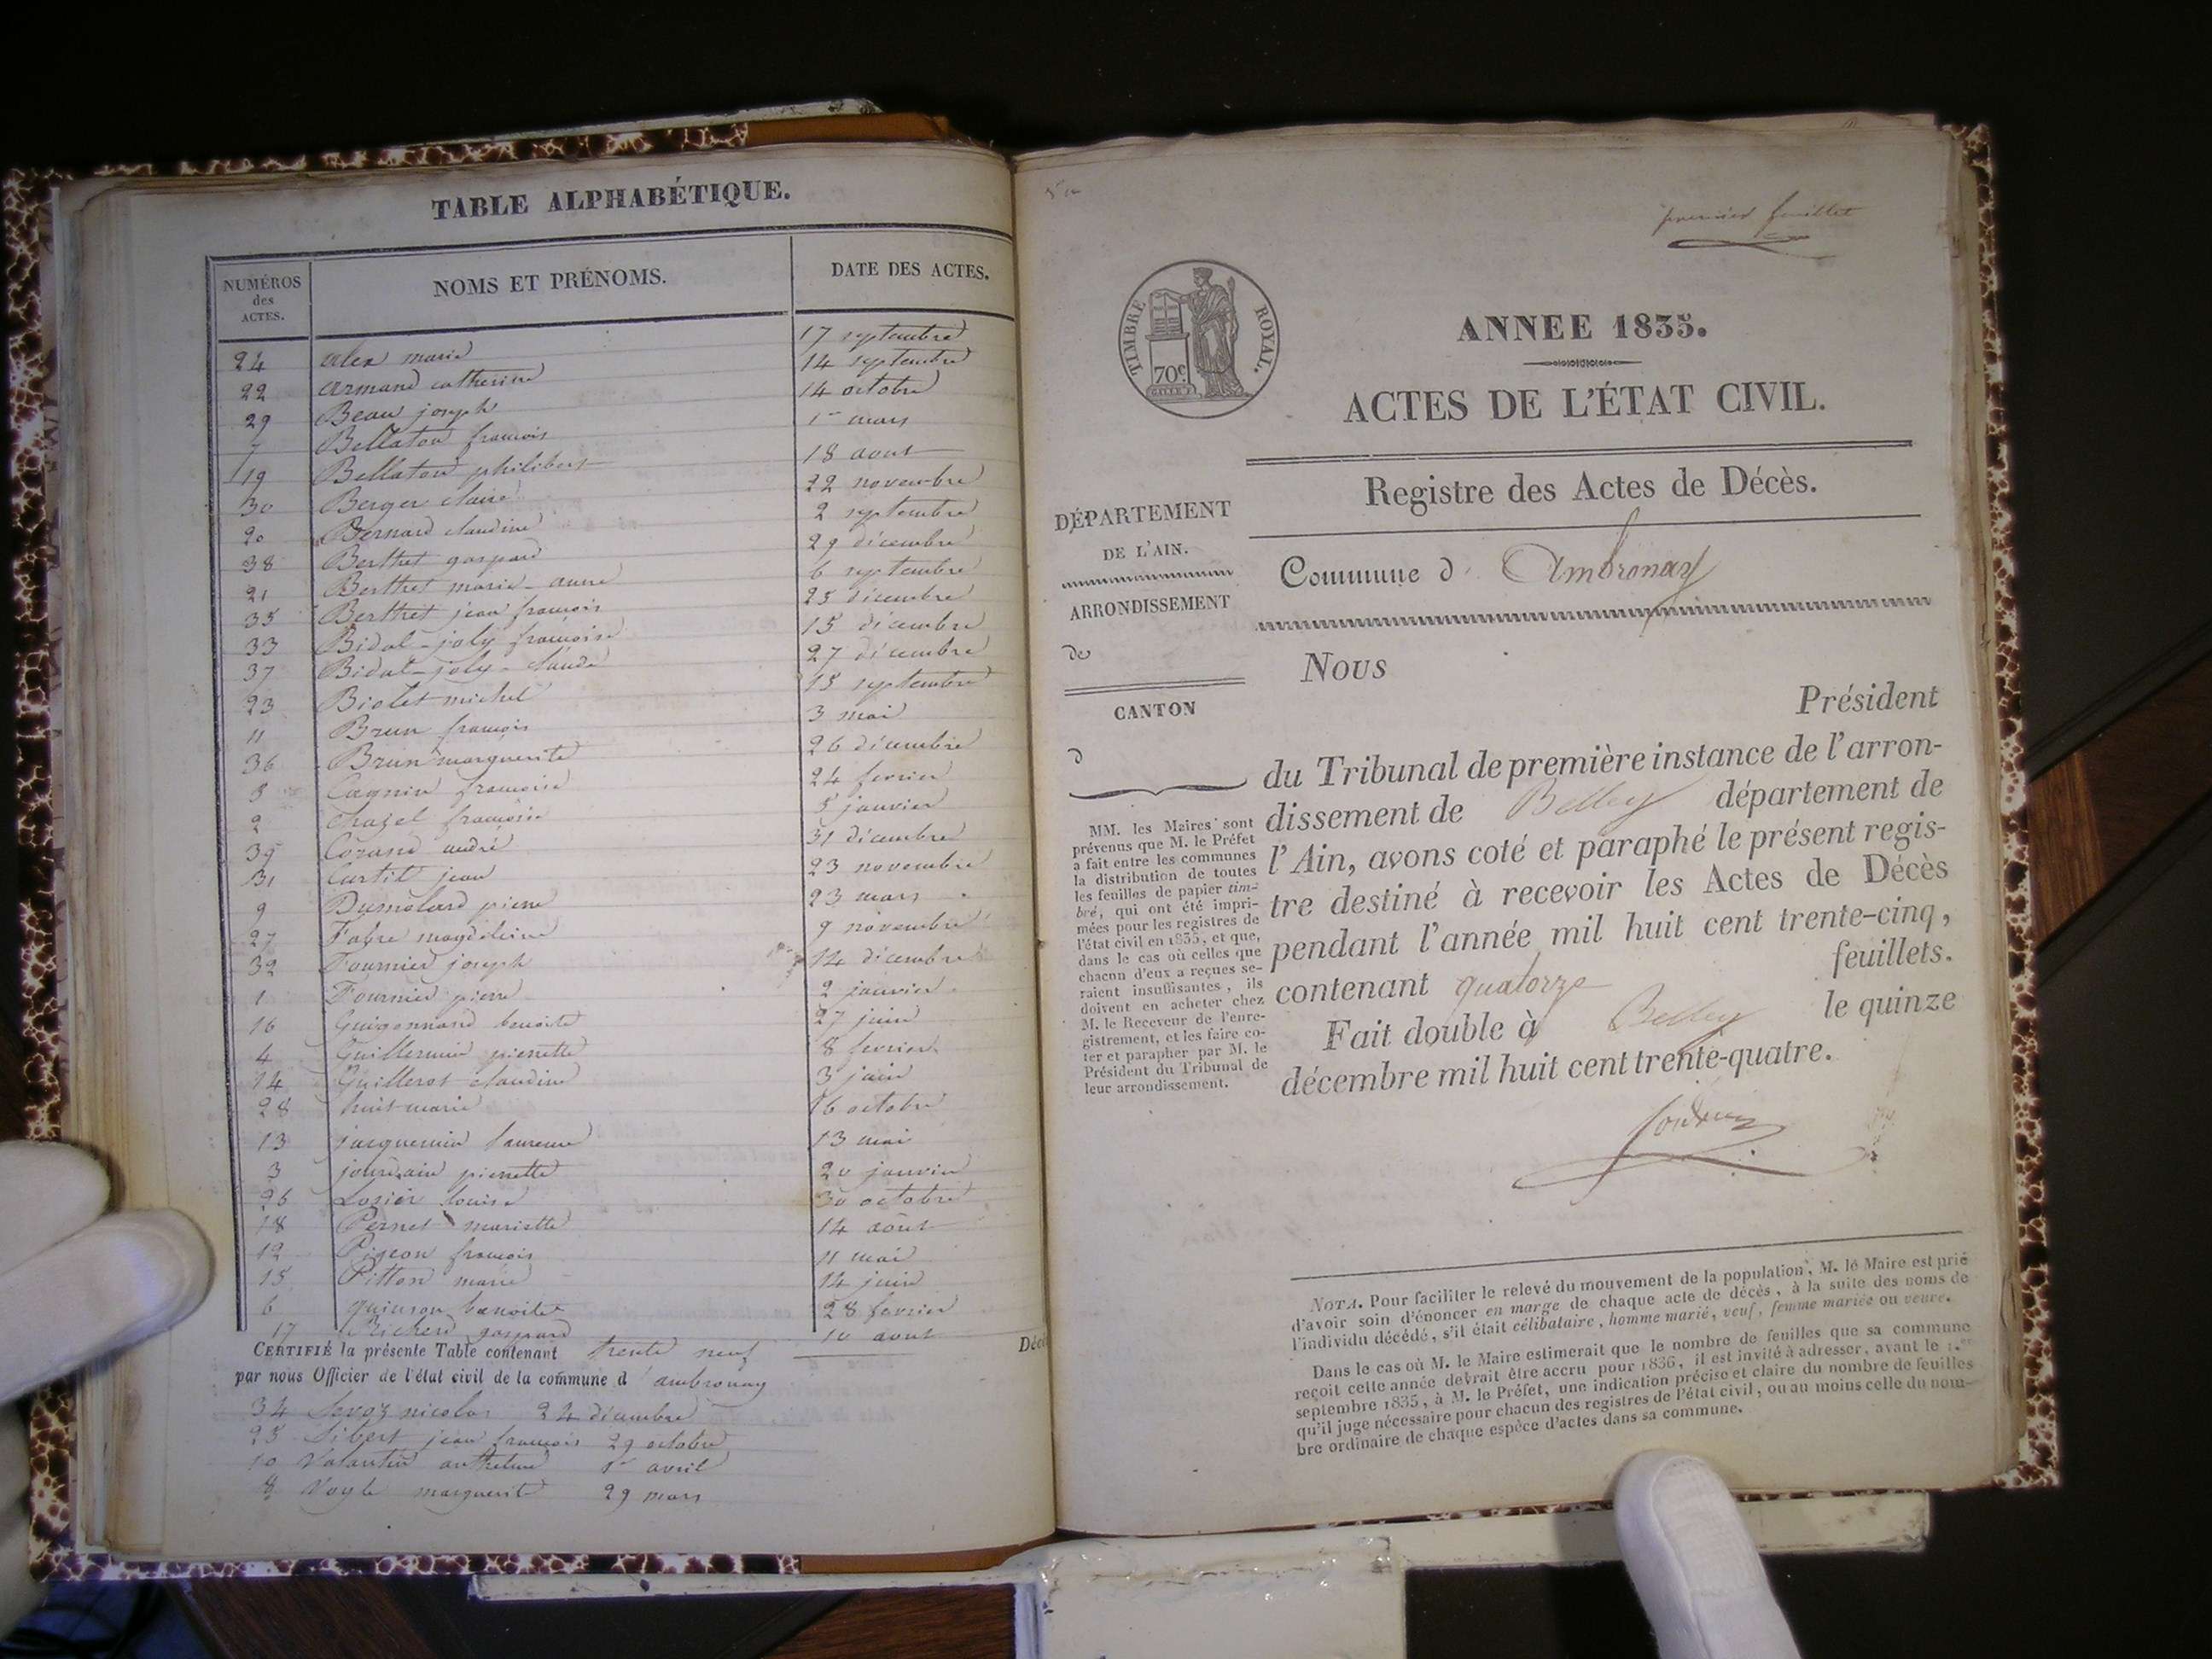 TABLE ALPHABÉTIQUE.
NUMÉROS des ACTES. NOMS ET PRÉNOMS. DATE DES ACTES.
24 alex marie 17 septembre
22 armand catherine 14 septembre
29 Beau joseph 14 octobre
7 Bellaton françois 1er mars
19 Bellaton philibert 18 aout
30 Berger claire 22 novembre
20 Bernard claudine 2 septembre
38 Berthet gaspard 29 décembre
21 Berthet marie-anne 6 septembre
35 Berthet jean françois 25 décembre
33 Bidal-joly françoise 15 décembre
37 Bidal-joly-claude 27 décembre
23 Biolet michel 15 septembre
11 Brun françois 3 mai
36 Brun marguerite 26 décembre
5 Cagnin françoise 24 fevrier
2 chazel françoise 5 janvier
39 Cozand andré 31 décembre
31 Curtil jean 23 novembre
9 Dumolard pierre 23 mars
27 Fabre magdeleine 9 novembre
32 Fournier joseph 14 décembre
1 Fournier pierre 2 janvier
16 Guigonnand benoite 27 juin
4 Guillermin pierrette 8 fevrier
14 Guillerot claudine 3 juin
28 huit marie 16 octobre
13 jacquemin laurence 13 mai
3 jourdain pierrette 20 janvier
26 Lozier louise 30 octobre
18 Pernet mariette 14 août
12 Pigeon françois 11 mai
15 Pitton marie 14 juin
6 quinson benoite 28 fevrier
17 Richerd gaspard 10 aout
CERTIFIÉ la présente Table contenant trente neuf
par nous Officier de l'état civil de la commune d'ambronay
34 Savoz nicolas 24 décembre
25 Sibert jean françois 29 octobre
10 Valantin anthelme 1er avril
8 Voyle marguerite 29 mars
premier feuillet
TIMBRE ROYAL.
70c.
ANNEE 1835.
ACTES DE L'ÉTAT CIVIL.
Registre des Actes de Décès.
DÉPARTEMENT
DE L'AIN.
ARRONDISSEMENT
de
CANTON
d
MM. les Maires sont
prévenus que M. le Préfet
a fait entre les communes
la distribution de toutes
les feuilles de papier tim-
bré, qui ont été impri-
mées pour les registres de
l'état civil en 1835, et que,
dans le cas où celles que
chacun d'eux a reçues se-
raient insuffisantes, ils
doivent en acheter chez
M. le Receveur de l'enre-
gistrement, et les faire co-
ter et parapher par M. le
Président du Tribunal de
leur arrondissement.
Commune d'Ambronay
Nous
Président
du Tribunal de première instance de l'arron-
dissement de Belley département de
l'Ain, avons coté et paraphé le présent regis-
tre destiné à recevoir les Actes de Décès
pendant l'année mil huit cent trente-cinq,
contenant quatorze feuillets.
Fait double à Belley le quinze
décembre mil huit cent trente-quatre.
NOTA. Pour faciliter le relevé du mouvement de la population, M. le Maire est prié
d'avoir soin d'énoncer en marge de chaque acte de décès, à la suite des noms de
l'individu décédé, s'il était célibataire, homme marié, veuf, femme mariée ou veuve.
Dans le cas où M. le Maire estimerait que le nombre de feuilles que sa commune
reçoit cette année devrait être accru pour 1836, il est invité à adresser, avant le 1.er
septembre 1835, à M. le Préfet, une indication précise et claire du nombre de feuilles
qu'il juge nécessaire pour chacun des registres de l'état civil, ou au moins celle du nom-
bre ordinaire de chaque espèce d'actes dans sa commune.